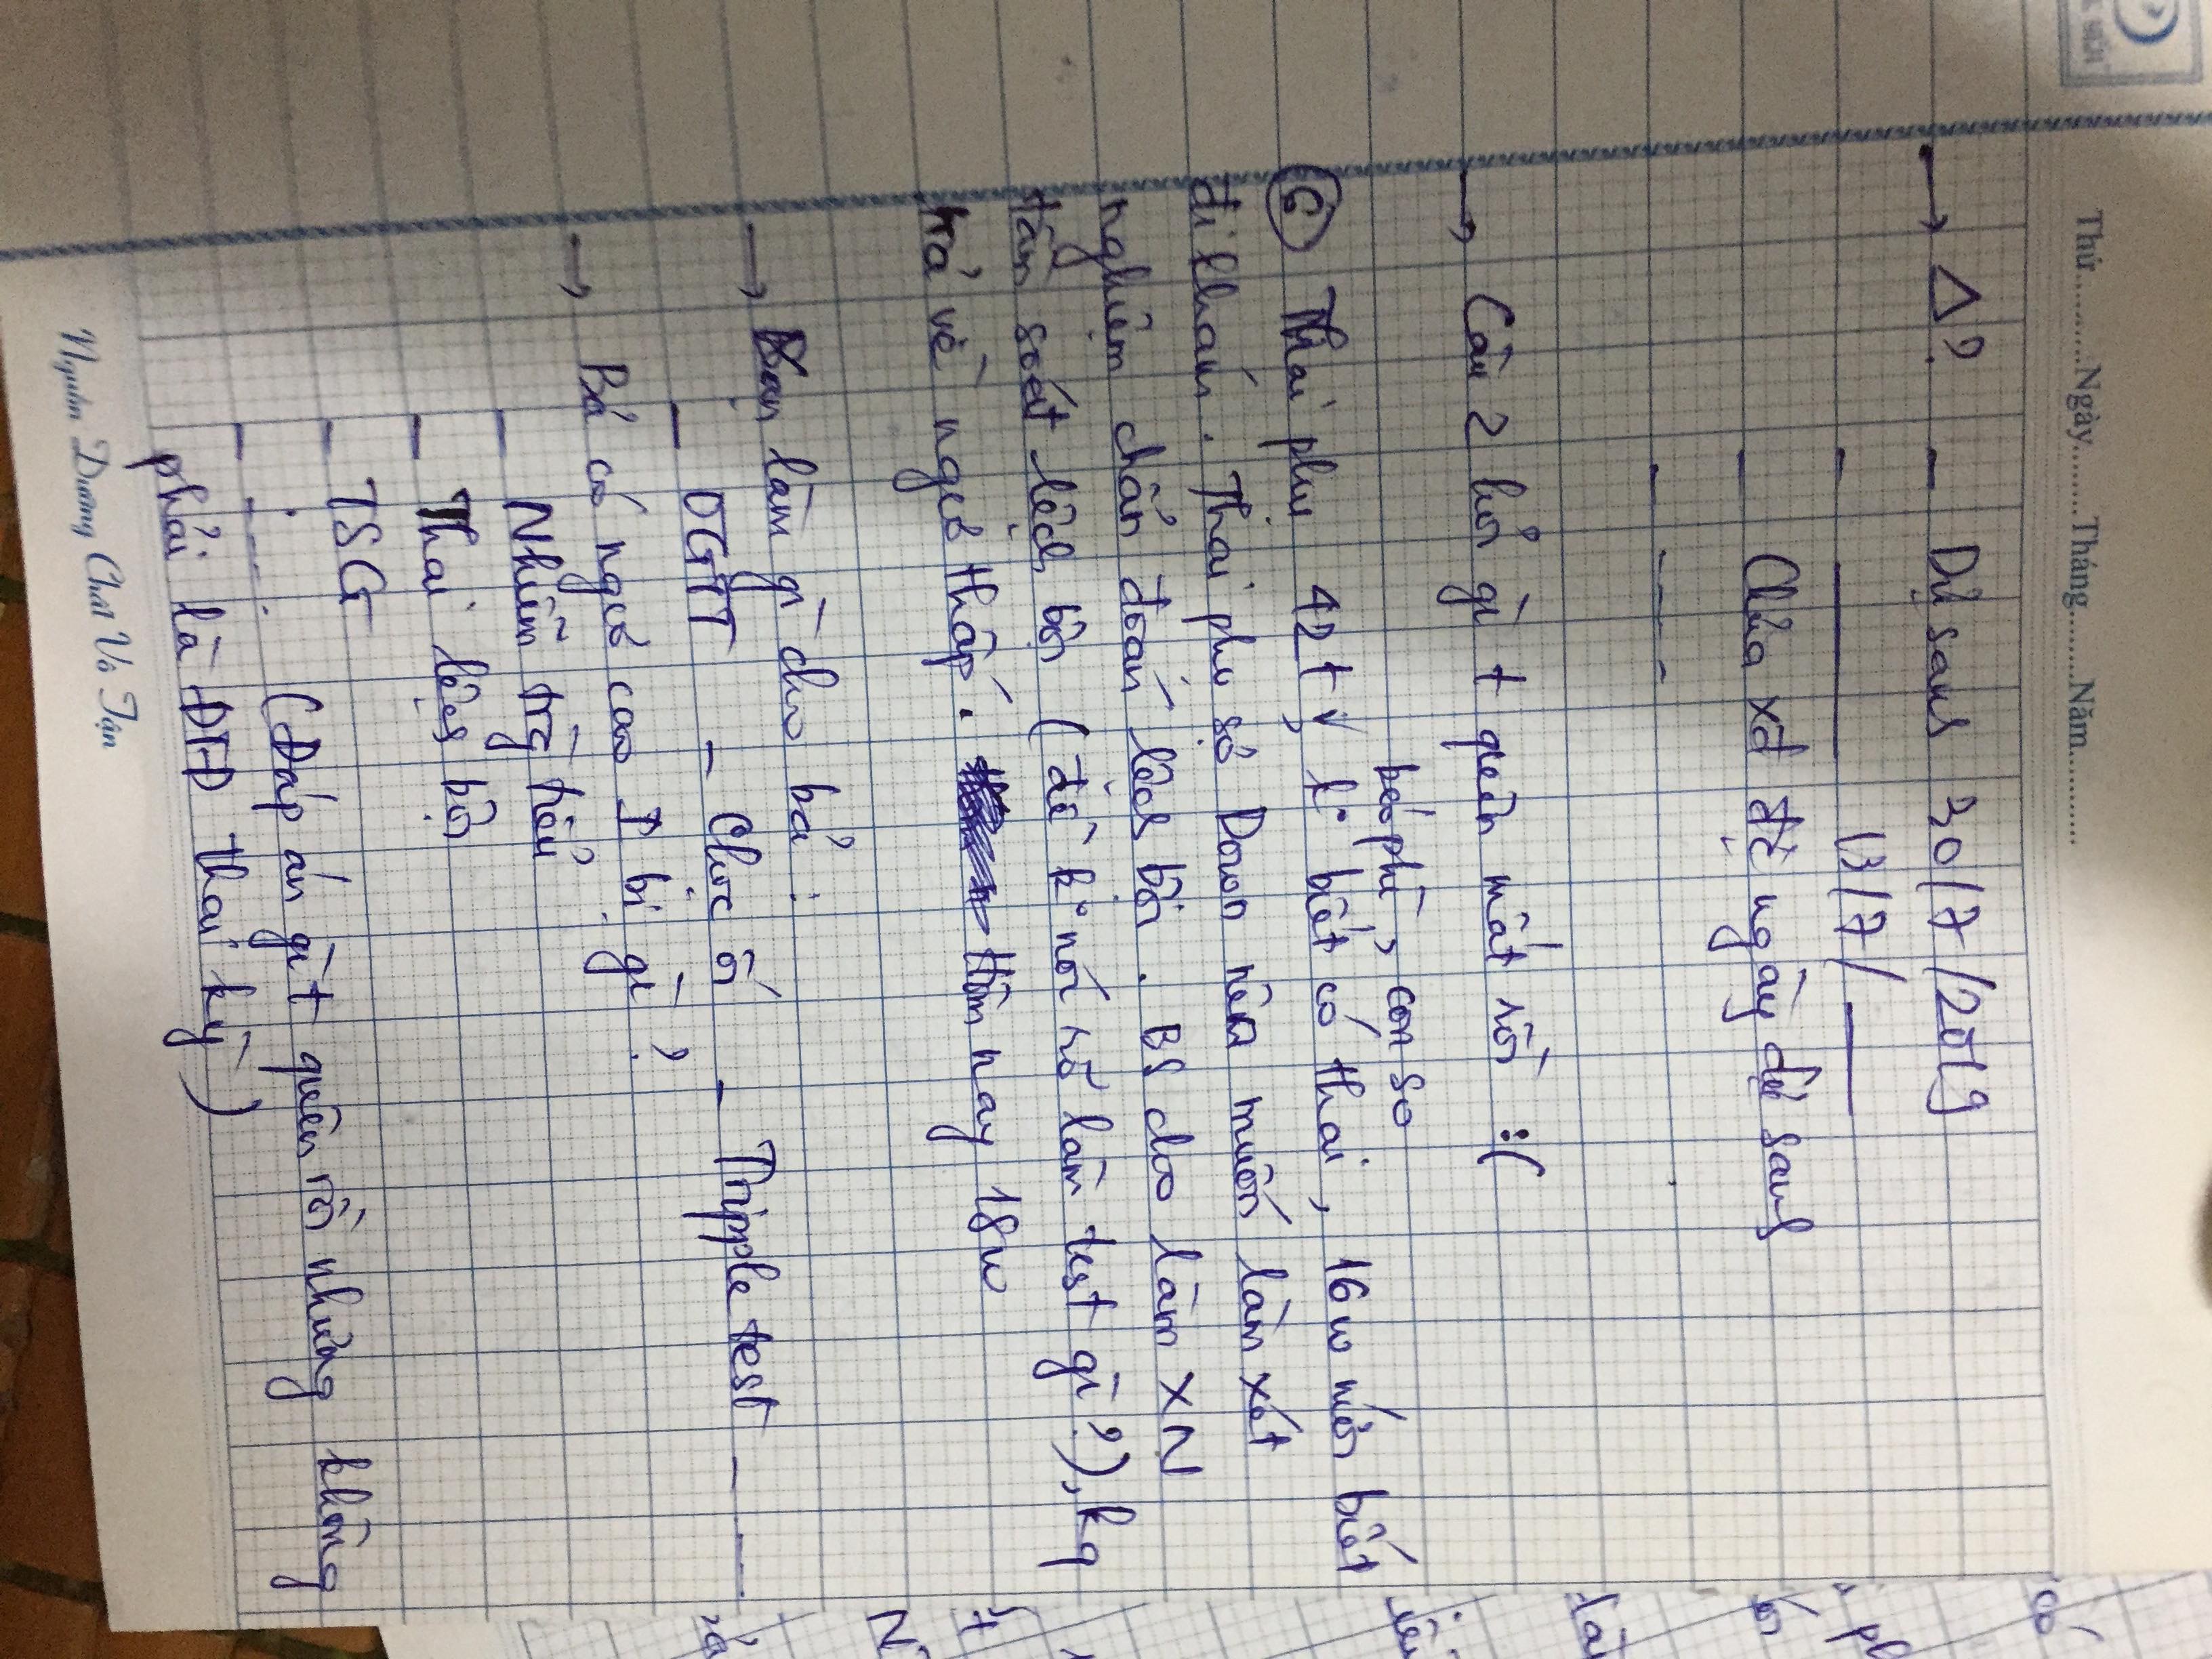 Thứ..........Ngày........Tháng........Năm...........
→ Δ? – Dự sanh 30/7/2019
– ——— 13/7/ ——
– Chưa xđ đc̣ ngày dự sanh
– ----
→ Câu 2 hỏi gì t quên mất rồi :(
béo phì, con so
⑥ Thai phụ 42t, k° biết có thai, 16w mới biết
đi khám. Thai phụ sợ Down nên muốn làm xét
nghiệm chẩn đoán lệch bội. BS cho làm XN
tầm soát lệch bội (đề k° nói rõ làm test gì?), kq
trả về ngcơ thấp. Hôm nay 18w
→ Bạn làm gì cho bả:
– OGTT – Chọc ối – Tripple test – ----
→ Bả có ngcơ cao I bị gì?
– Nhiễm trg̀ tiểu
– Thai lệch bội
– TSG
– ----. (Đáp án gì t quên rồi nhưng không
phải là ĐTĐ thai kỳ)
Nguồn Dưỡng Chất Vô Tận